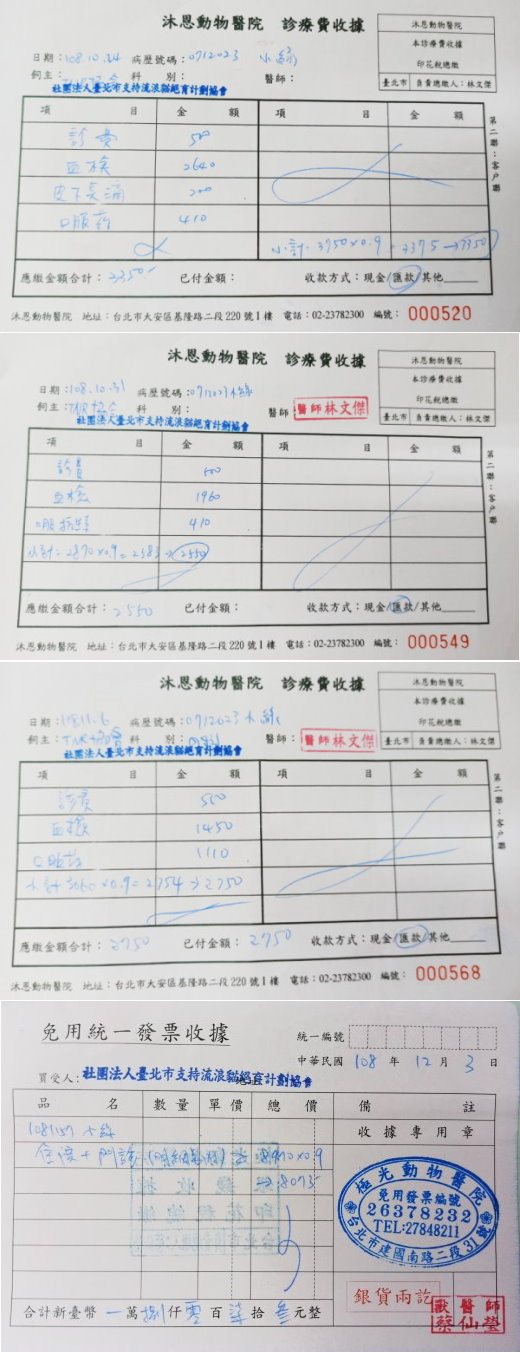 沐恩動物醫院 診療費收據
沐恩動物醫院
本診療費收據
印花稅總繳
臺北市 負責總繳人：林文傑
日期：108.10.24 病歷號碼：0712023 小綠
飼主： 科 別： 醫師：
社團法人臺北市支持流浪貓絕育計劃協會
項 目 金 額 項 目 金 額
診費 500
血檢 2640
皮下點滴 200
口服葯 410
小計：3750×0.9=3375→3350
第二聯：客戶聯
應繳金額合計：3350 已付金額： 收款方式：現金/匯款/其他
沐恩動物醫院 地址：台北市大安區基隆路二段220號1樓 電話：02-23782300 編號：000520
沐恩動物醫院 診療費收據
沐恩動物醫院
本診療費收據
印花稅總繳
臺北市 負責總繳人：林文傑
日期：108.10.31 病歷號碼：0712023小綠
飼主： 科 別： 醫師：醫師林文傑
社團法人臺北市支持流浪貓絕育計劃協會
項 目 金 額 項 目 金 額
診費 500
血檢 1960
口服 410
小計：2870×0.9=2583→2550
第二聯：客戶聯
應繳金額合計：2550 已付金額： 收款方式：現金/匯款/其他
沐恩動物醫院 地址：台北市大安區基隆路二段220號1樓 電話：02-23782300 編號：000549
沐恩動物醫院 診療費收據
沐恩動物醫院
本診療費收據
印花稅總繳
臺北市 負責總繳人：林文傑
日期：108.11.6 病歷號碼：0712023小綠
飼主：TNR協會 科 別： 醫師：醫師林文傑
社團法人臺北市支持流浪貓絕育計劃協會
項 目 金 額 項 目 金 額
診費 500
血檢 1450
口服葯 1110
小計 3060×0.9=2754→2750
第二聯：客戶聯
應繳金額合計：2750 已付金額：2750 收款方式：現金/匯款/其他
沐恩動物醫院 地址：台北市大安區基隆路二段220號1樓 電話：02-23782300 編號：000568
免用統一發票收據
統一編號
中華民國 108 年 12 月 3 日
買受人：社團法人臺北市支持流浪貓絕育計劃協會
品 名 數量 單價 總價 備 註
小綠 收據專用章
住院+門診 ×0.9
極光動物醫院
免用發票編號
26378232
TEL:27848211
台北市建國南路二段31號
銀貨兩訖
獸醫師
蔡仙瑩
合計新臺幣 一萬捌仟零百柒拾叁元整